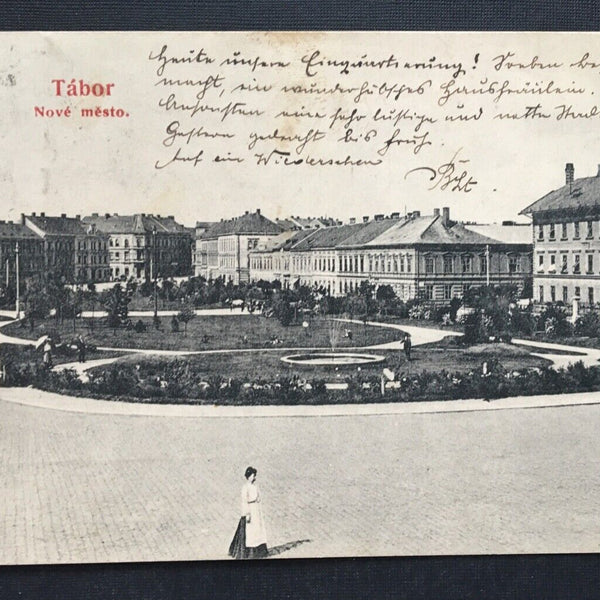 Tábor
Nové město.
Heute unsere Einquartierung! Soeben
macht, ein wunderhübsches Hausfräulein.
Ansonsten eine sehr lustige und nette Stadt
Gestern gedracht bis früh.
Auf ein Wiedersehen